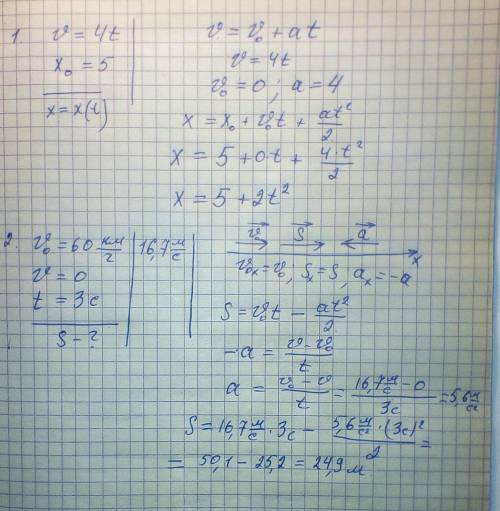 1. v = 4t
x₀ = 5
x = x(t)
v = v₀ + at
v = 4t
v₀ = 0; a = 4
x = x₀ + v₀t + at²/2
x = 5 + 0·t + 4·t²/2
x = 5 + 2t²
2. v₀ = 60 км/ч | 16,7 м/с
v = 0
t = 3с
S - ?
v₀ S a x
v₀ₓ = v₀, Sₓ = S, aₓ = -a
S = v₀t - at²/2
-a = (v - v₀)/t
a = (v₀ - v)/t = (16,7 м/с - 0)/3с = 5,6 м/с²
S = 16,7 м/с · 3с - (5,6 м/с² · (3с)²)/2 =
= 50,1 - 25,2 = 24,9 м